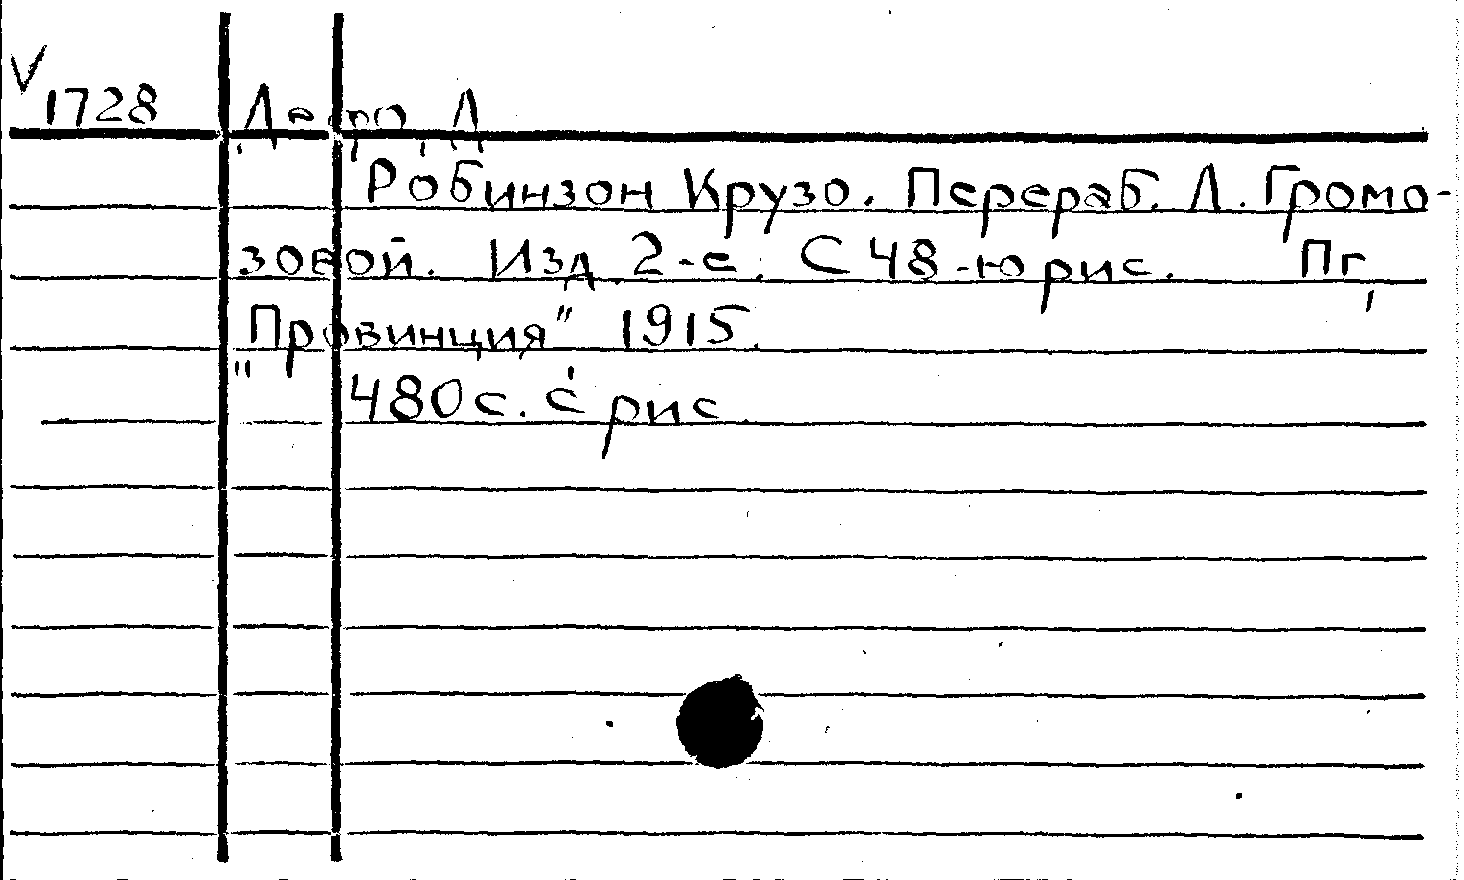 V
1728 Дефо, Д
Робинзон Крузо. Перераб. Л. Громо-
зовой. Изд. 2-е. С 48-ю рис. Пг,
"Провинция" 1915.
480 с. с рис.